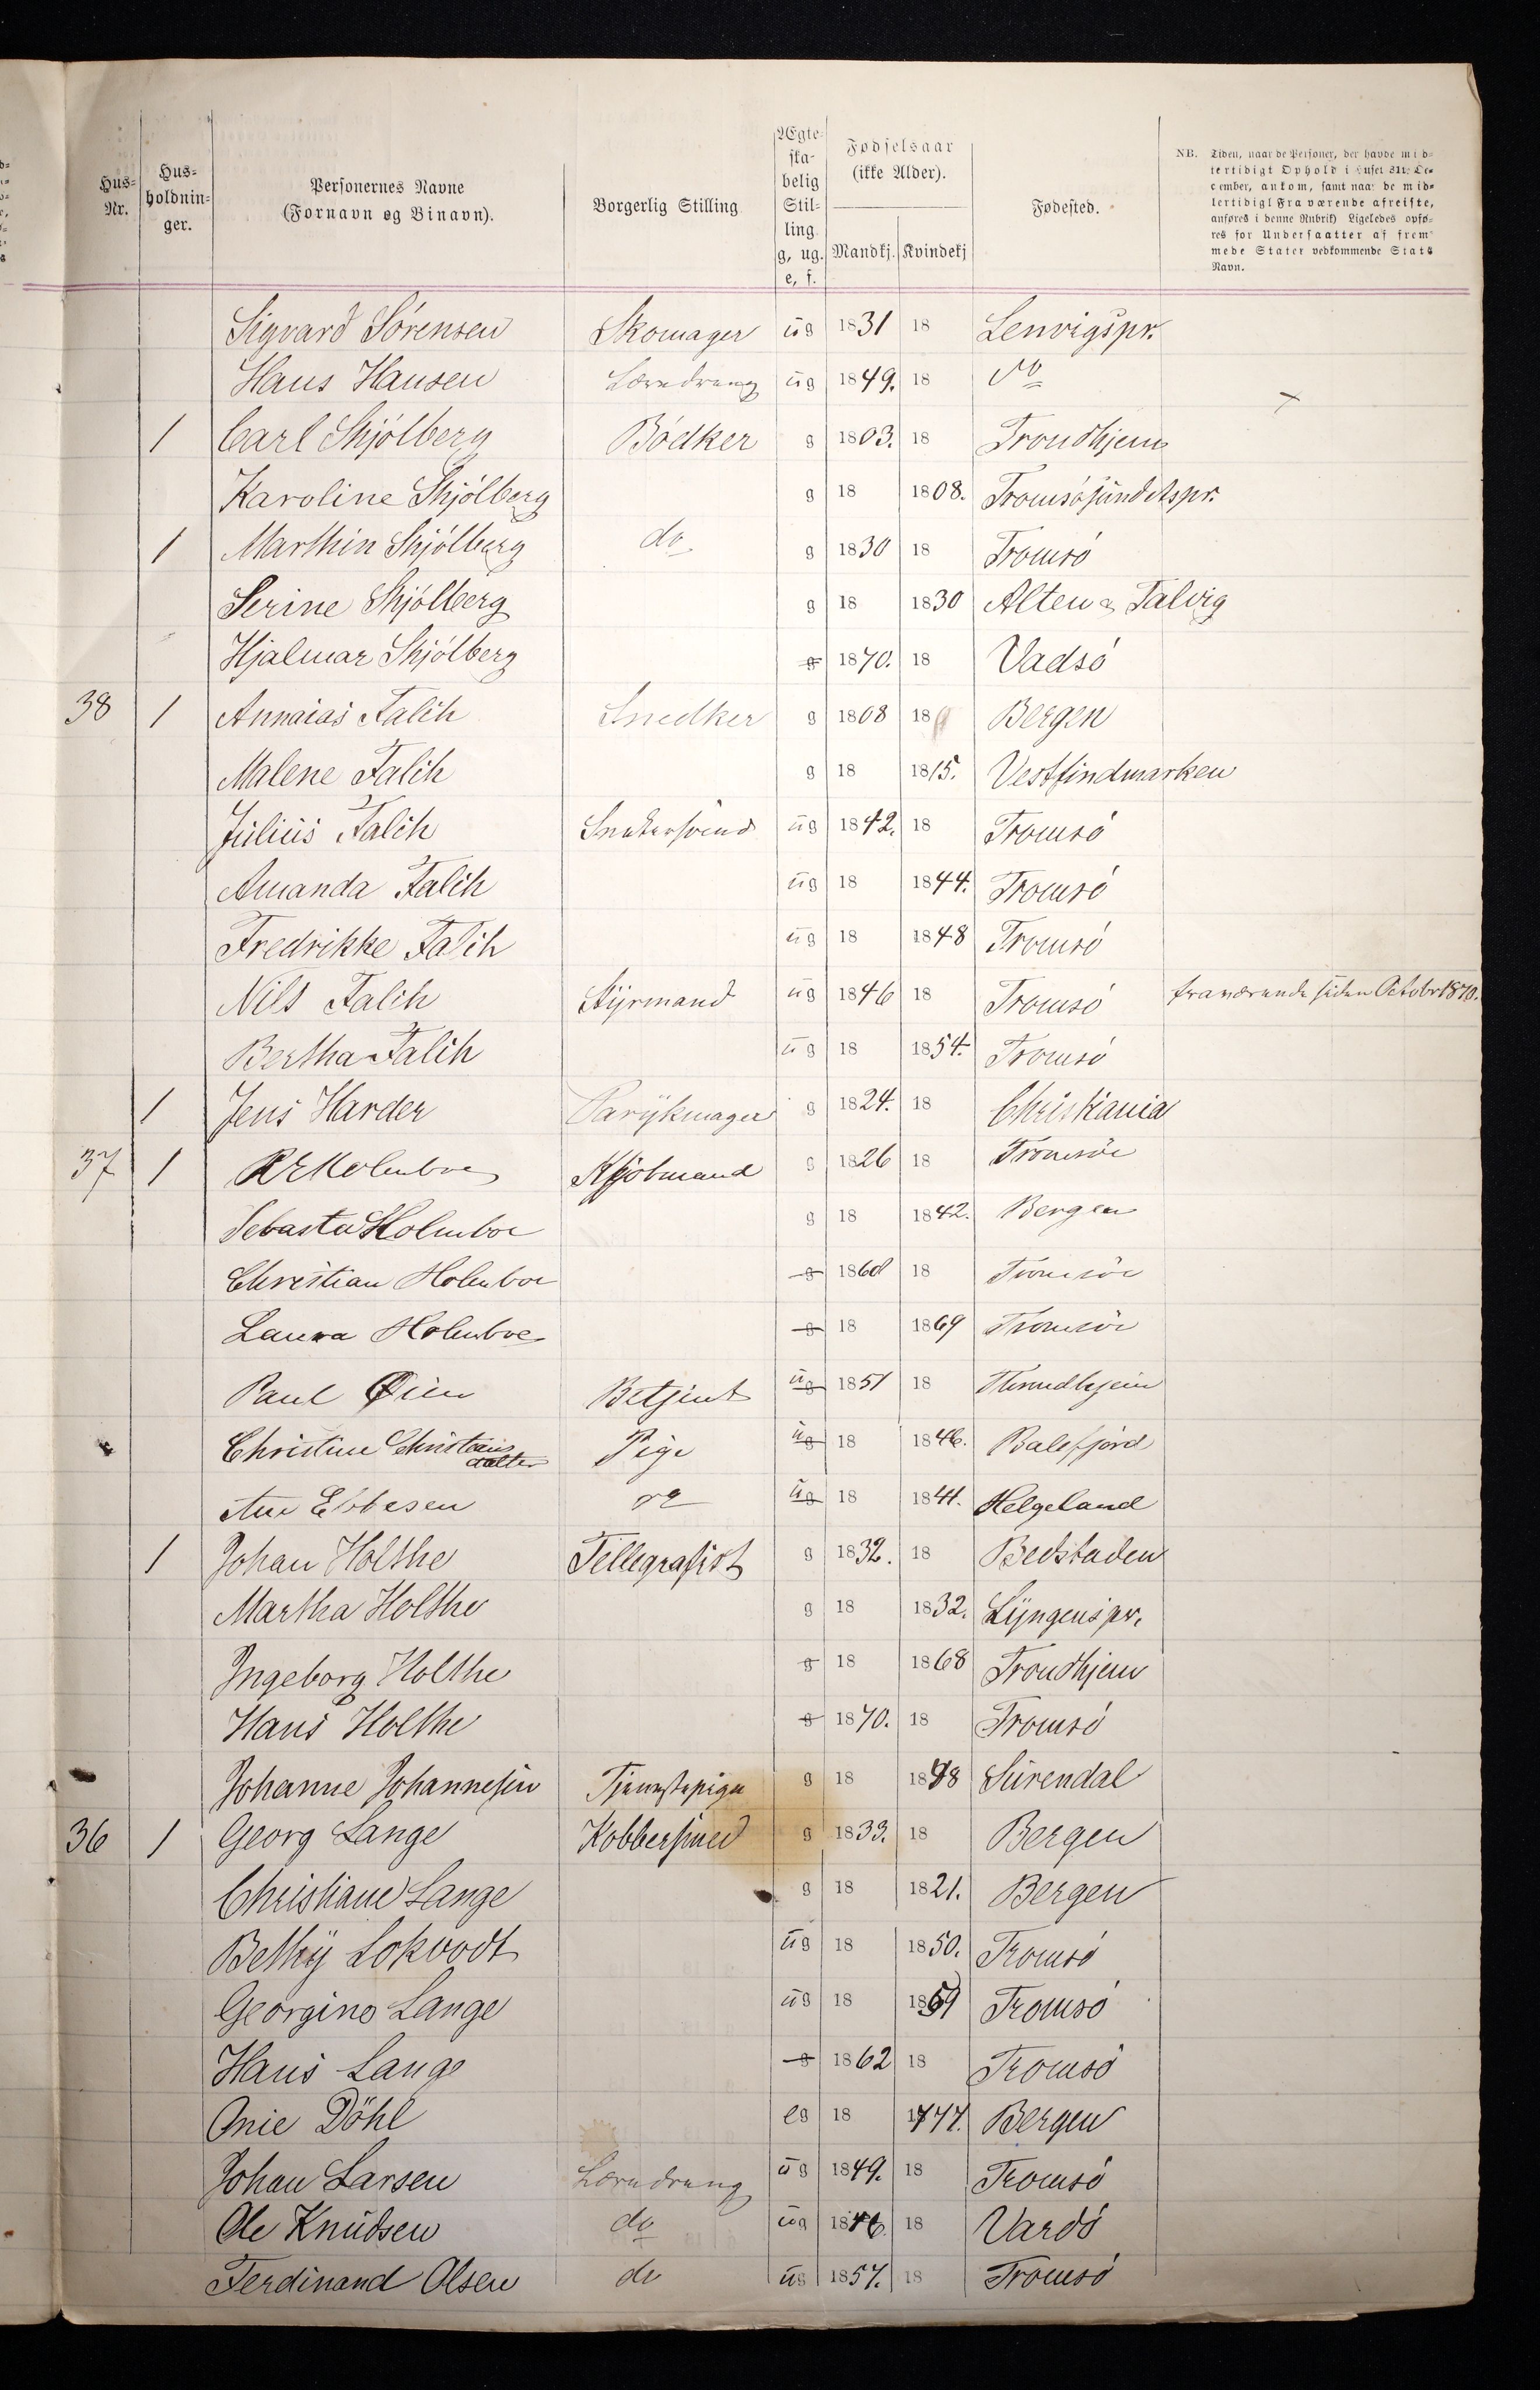 Hus- Nr. | Hus- holdnin- ger. | Personernes Navne (Fornavn og Binavn). | Borgerlig Stilling | Ægte- ska- belig Stil- ling g, ug. e, f. | Fødselsaar (ikke Alder). Mandkj. Kvindekj | Fødested. | NB. Tiden, naar de Personer, der havde mid- lertidigt Ophold i Huset 31te De- cember, ankom, samt naar de mid- lertidigt Fraværende afreiste, anføres i denne Rubrik) Ligeledes opfø- res for Undersaatter af frem- mede Stater vedkommende Stats Navn.
Sigvard Sørensen Skomager ug 1831 18 Lenvigspr.
Hans Hansen Læredreng ug 1849. 18 do
1 Carl Skjólberg Bódker g 1803. 18 Trondhjem
Karoline Skjólberg g 18 1808. Tromsósundetspr.
1 Marthin Skjólberg do g 1830 18 Tromsó
Serine Skjólberg g 18 1830 Alten & Talvig
Hjalmar Skjólberg g 1870. 18 Vadsó
38 1 Annaias Falch Snedker g 1808 18 Bergen
Malene Falch g 18 1815. Vestfindmarken
Julius Falch Snekersvend ug 1842. 18 Tromsó
Amanda Falch ug 18 1844. Tromsó
Fredrikke Falch ug 18 1848 Tromsó
Nils Falch Styrmand ug 1846 18 Tromsó fraværende siden Octobr 1870.
Bertha Falch ug 18 1854. Tromsó
1 Jens Harder Parykmager g 1824. 18 Christiania
37 1 Holmboe Kjóbmand g 1826 18 Tromsöe
Sebasta Holmboe g 18 1842. Bergen
Christian Holmboe g 1868 18 Tromsöe
Laura Holmboe g 18 1869 Tromsöe
Paul Øien Betjent ug 1851 18 Thrundhjem
Christine Christians datter Pige ug 18 1846. Balsfjord
Ane Ebbesen do ug 18 1841. Helgeland
1 Johan Holthe Tellegrafist g 1832. 18 Bedstaden
Martha Holthe g 18 1832. Lyngenspr.
Ingeborg Holthe g 18 1868 Trondhjem
Hans Holthe g 1870. 18 Tromsó
Johanne Johannesen Tjenestepige g 18 1848 Surendal
36 1 Georg Lange Kobbersmed g 1833. 18 Bergen
Christiane Lange g 18 1821. Bergen
Bethy Lokvodt ug 18 1850. Tromsó
Georgine Lange ug 18 1859 Tromsó
Hans Lange g 1862 18 Tromsó
Anie Döhl eg 18 1777. Bergen
Johan Larsen Læredreng ug 1849. 18 Tromsó
Ole Knudsen do ug 1846. 18 Vardó
Ferdinand Olsen do ug 1857. 18 Tromsó